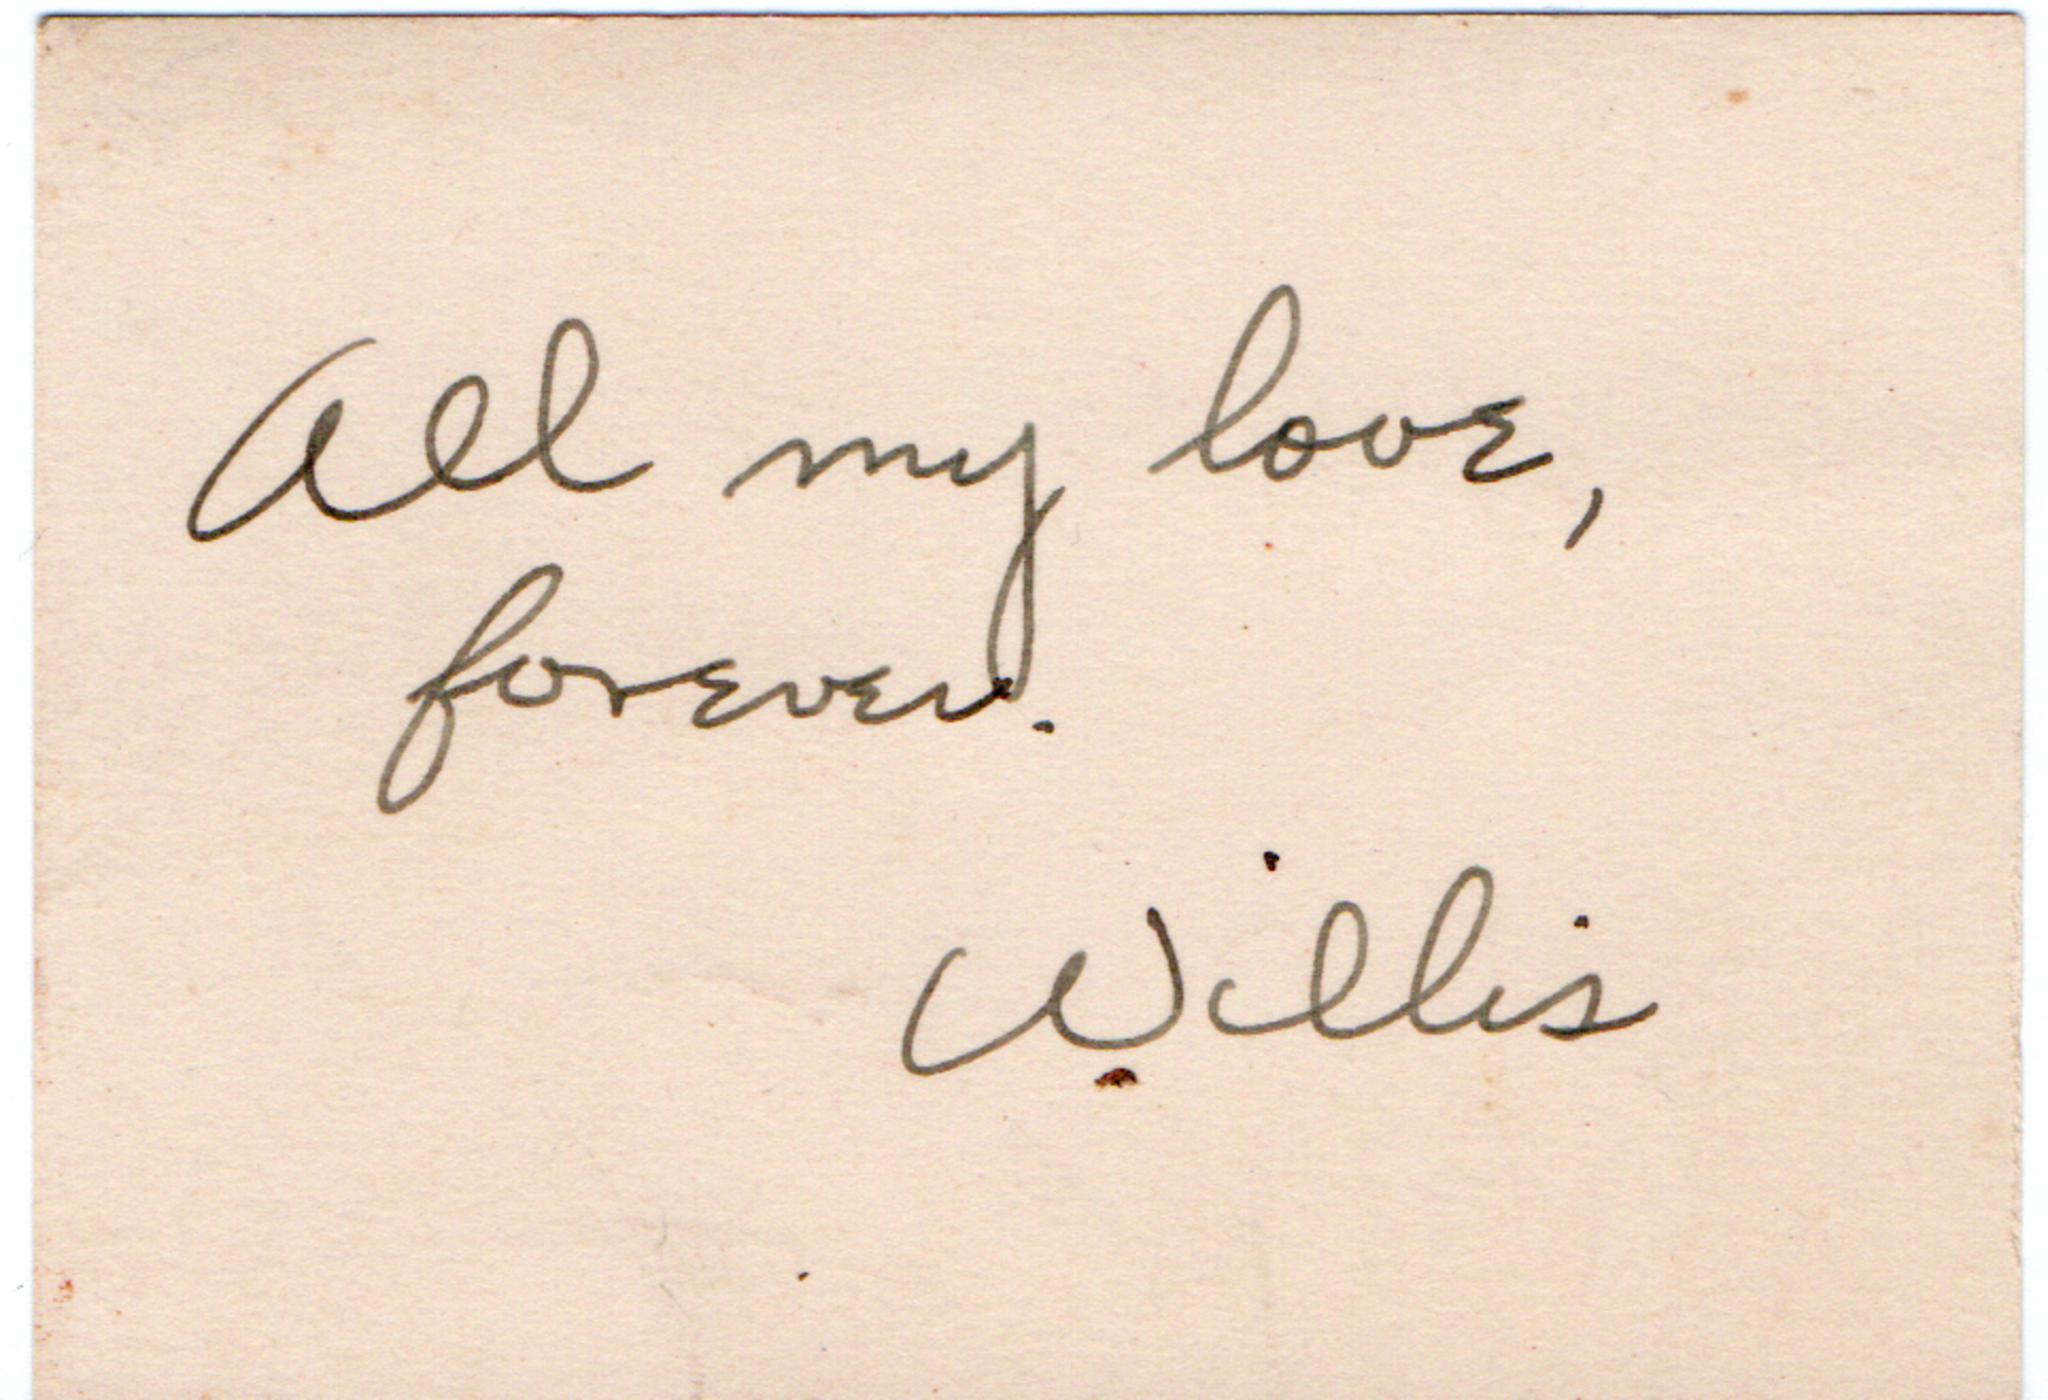 All my love,
forever.
Willis